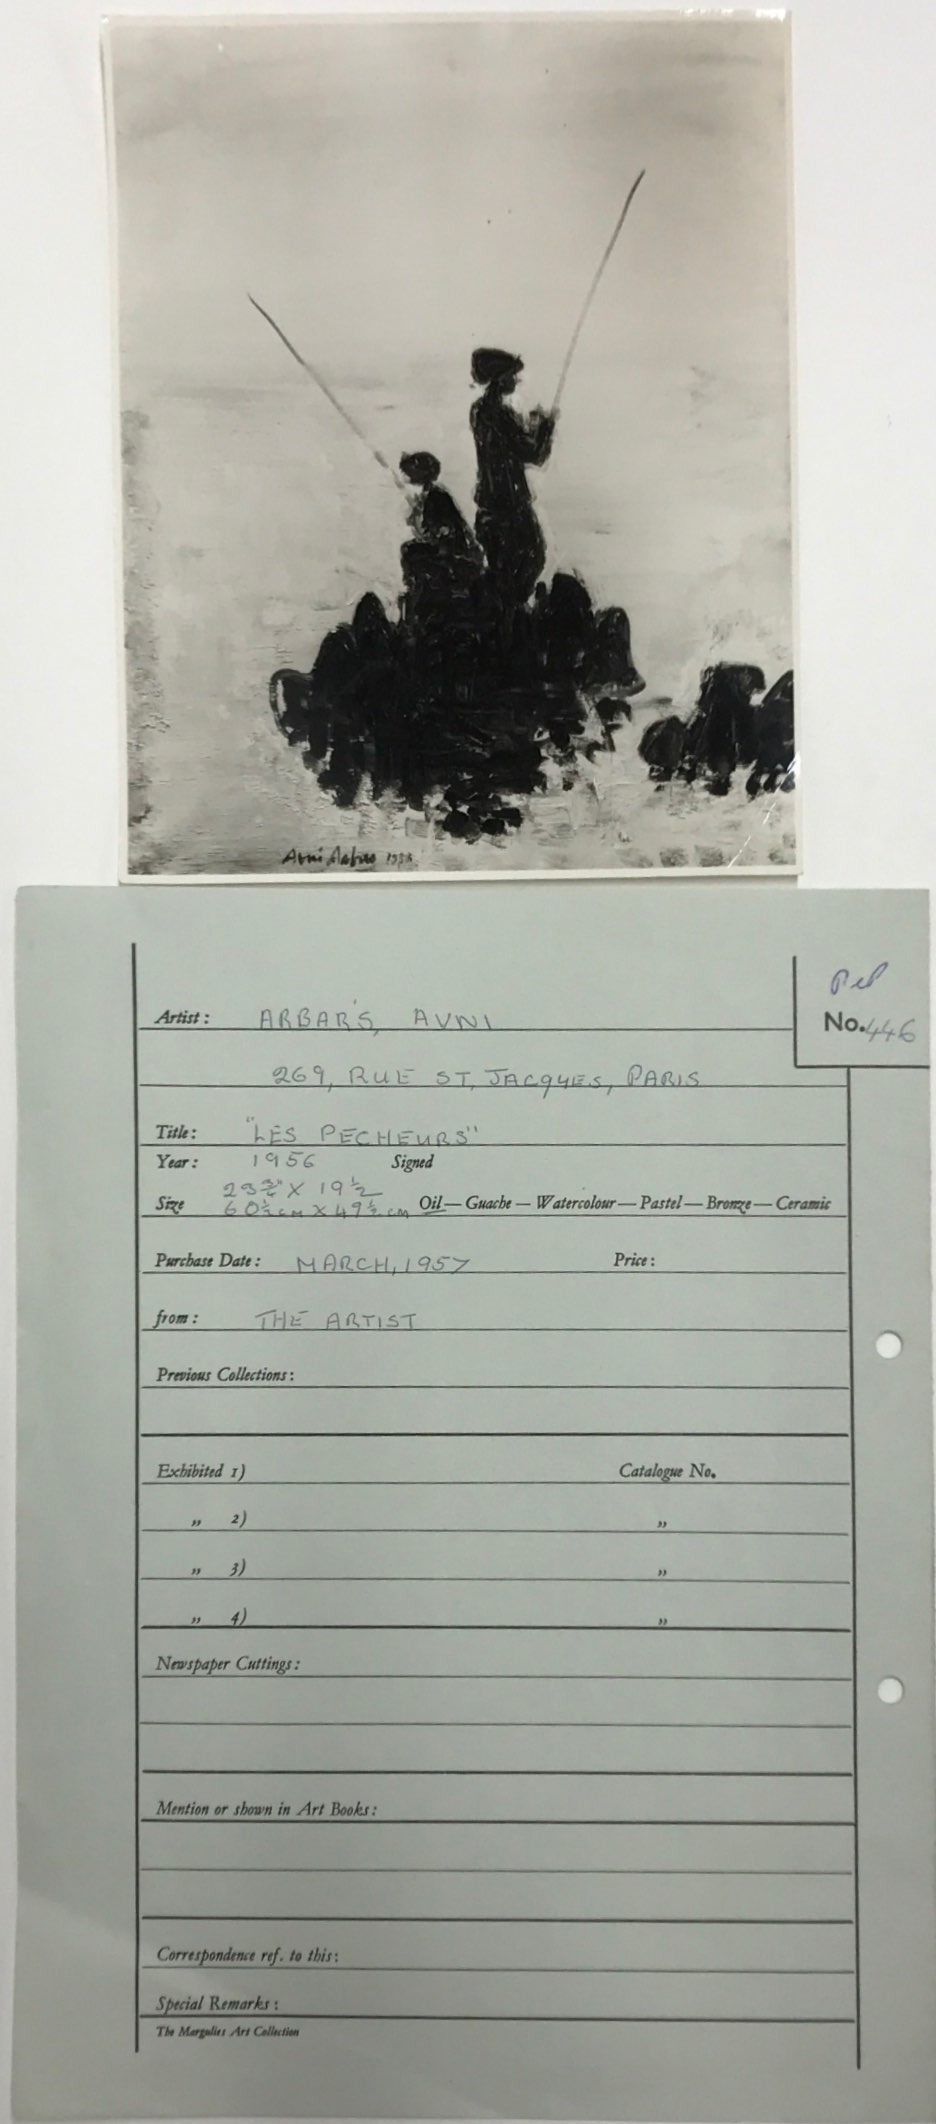 Avni Arbas 1956
Ref
Artist: ARBAR'S, AVNI No. 446
269, RUE ST, JACQUES, PARIS
Title: "LES PECHEURS"
Year: 1956 Signed
23 3/4" X 19 1/2
Size 60 1/2 cm X 49 1/2 cm Oil — Guache — Watercolour — Pastel — Bronze — Ceramic
Purchase Date: MARCH, 1957 Price:
from: THE ARTIST
Previous Collections:
Exhibited 1) Catalogue No.
„ 2) „
„ 3) „
„ 4) „
Newspaper Cuttings:
Mention or shown in Art Books:
Correspondence ref. to this:
Special Remarks:
The Margulies Art Collection